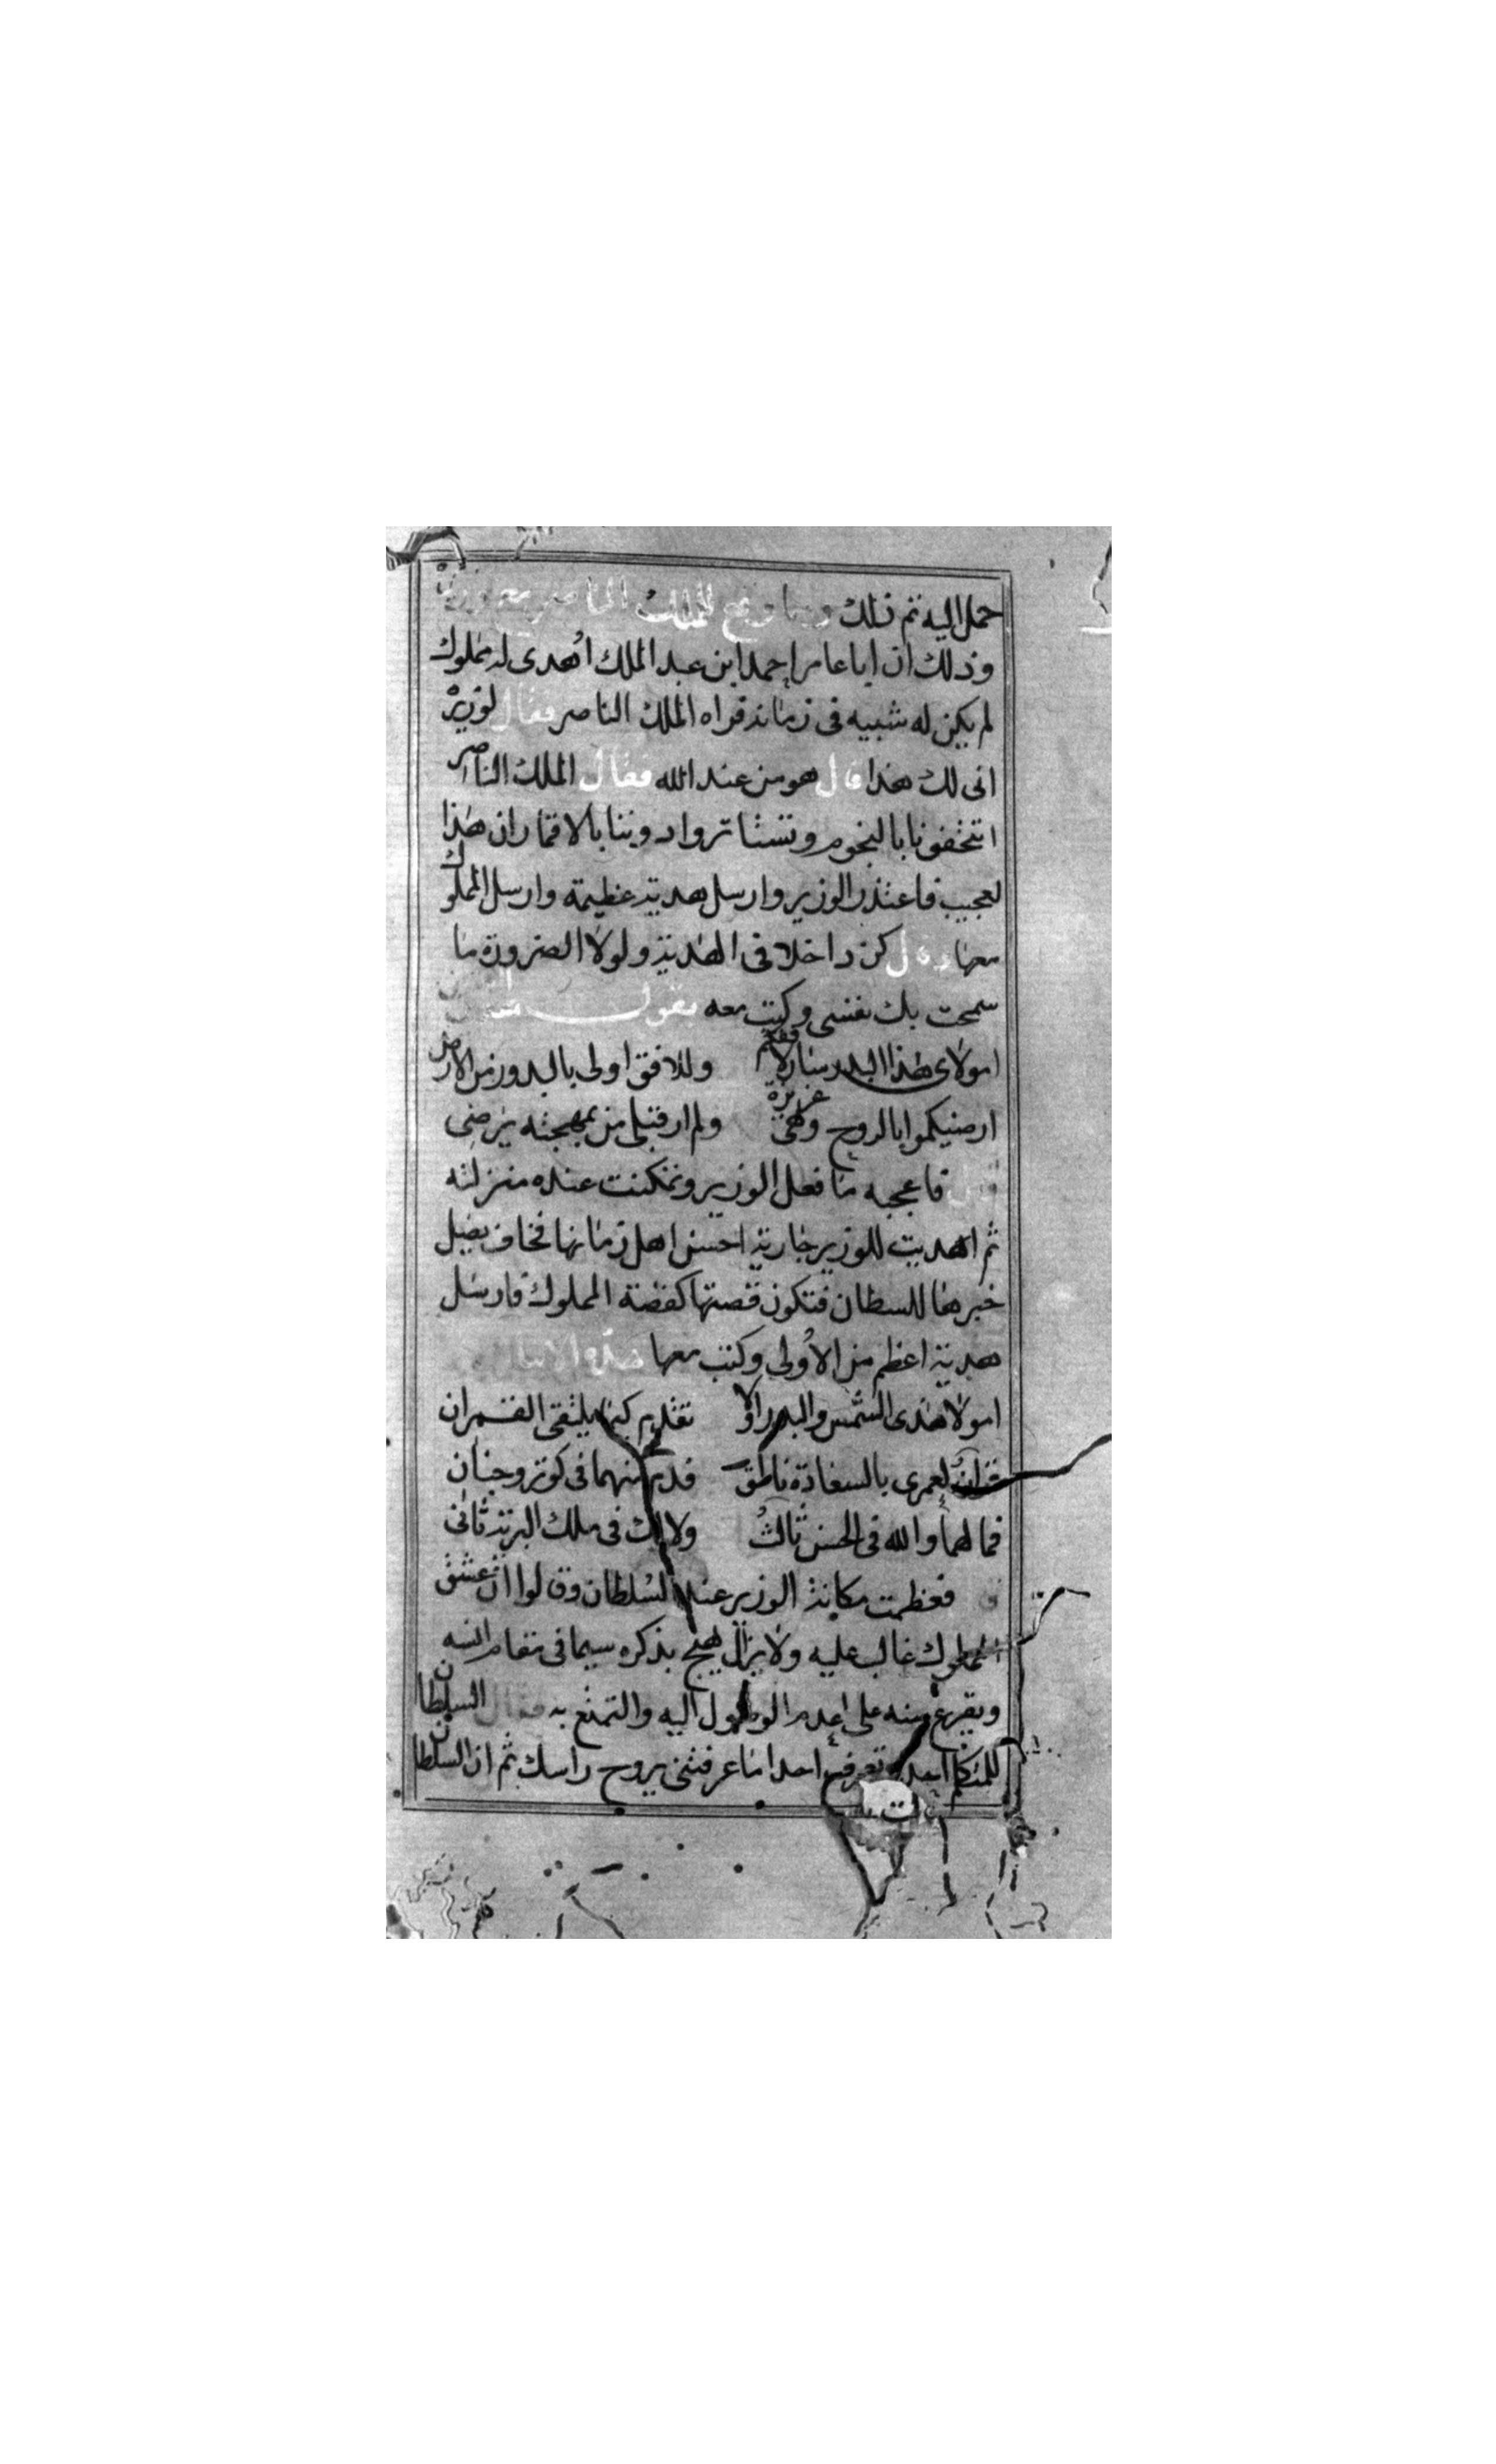 حمل اليه تم ذلك ومما وقع للملك الناصر مع وزيره
وذلك ان ابا عامر احمد ابن عبد الملك اُهدى له مملوك
لم يكن له شبيه فى زمانه فراه الملك الناصر فقال لوزيره
انى لك هذا قال هو من عند الله فقال الملك الناصر
اتتحفونا بالنجوم وتستاثروا دوننا بالاقمار ان هذا
لعجيب فاعتذر الوزير وارسل هدية عظيمة وارسل المملوك
معها وقال كن داخلا فى الهدية ولولا الضرورة ما
سمحت بك نفسى وكتب معه يقول
امولاى هذا البدر سار لافقكم وللافق اولى بالبدور من الارض
ارضيكموا بالروح وهى عزيزة ولم ار قبلى من بمهجته يرضى
فاعجبه ما فعل الوزير وتمكنت عنده منزلته
ثم اهديت للوزير جارية احسن اهل زمانها فخاف يصل
خبرها للسطان فتكون قصتها كقصة المملوك فارسل
هدية اعظم من الاُولى وكتب معها هذه الابيات
امولاى هذى الشمس والبدر اولا تقدم كيما يلتقى القمران
قران لعمرى بالسعادة ناطق فدم منهما فى كوثر وجنان
فما لهما والله فى الحسن ثالثُ ولا لك فى ملك البرية ثانى
فعظمت مكانة الوزير عند السلطان وقالوا ان عشق
المملوك غالب عليه ولا يزال يلهج بذكره سيما فى مقام انسه
ويقرع سنه على اعدم الوصول اليه والتمتع به فقال السلطان
للمتكلم احد تعرف احدا ما عرفتنى يروح راسك ثم ان السلطان